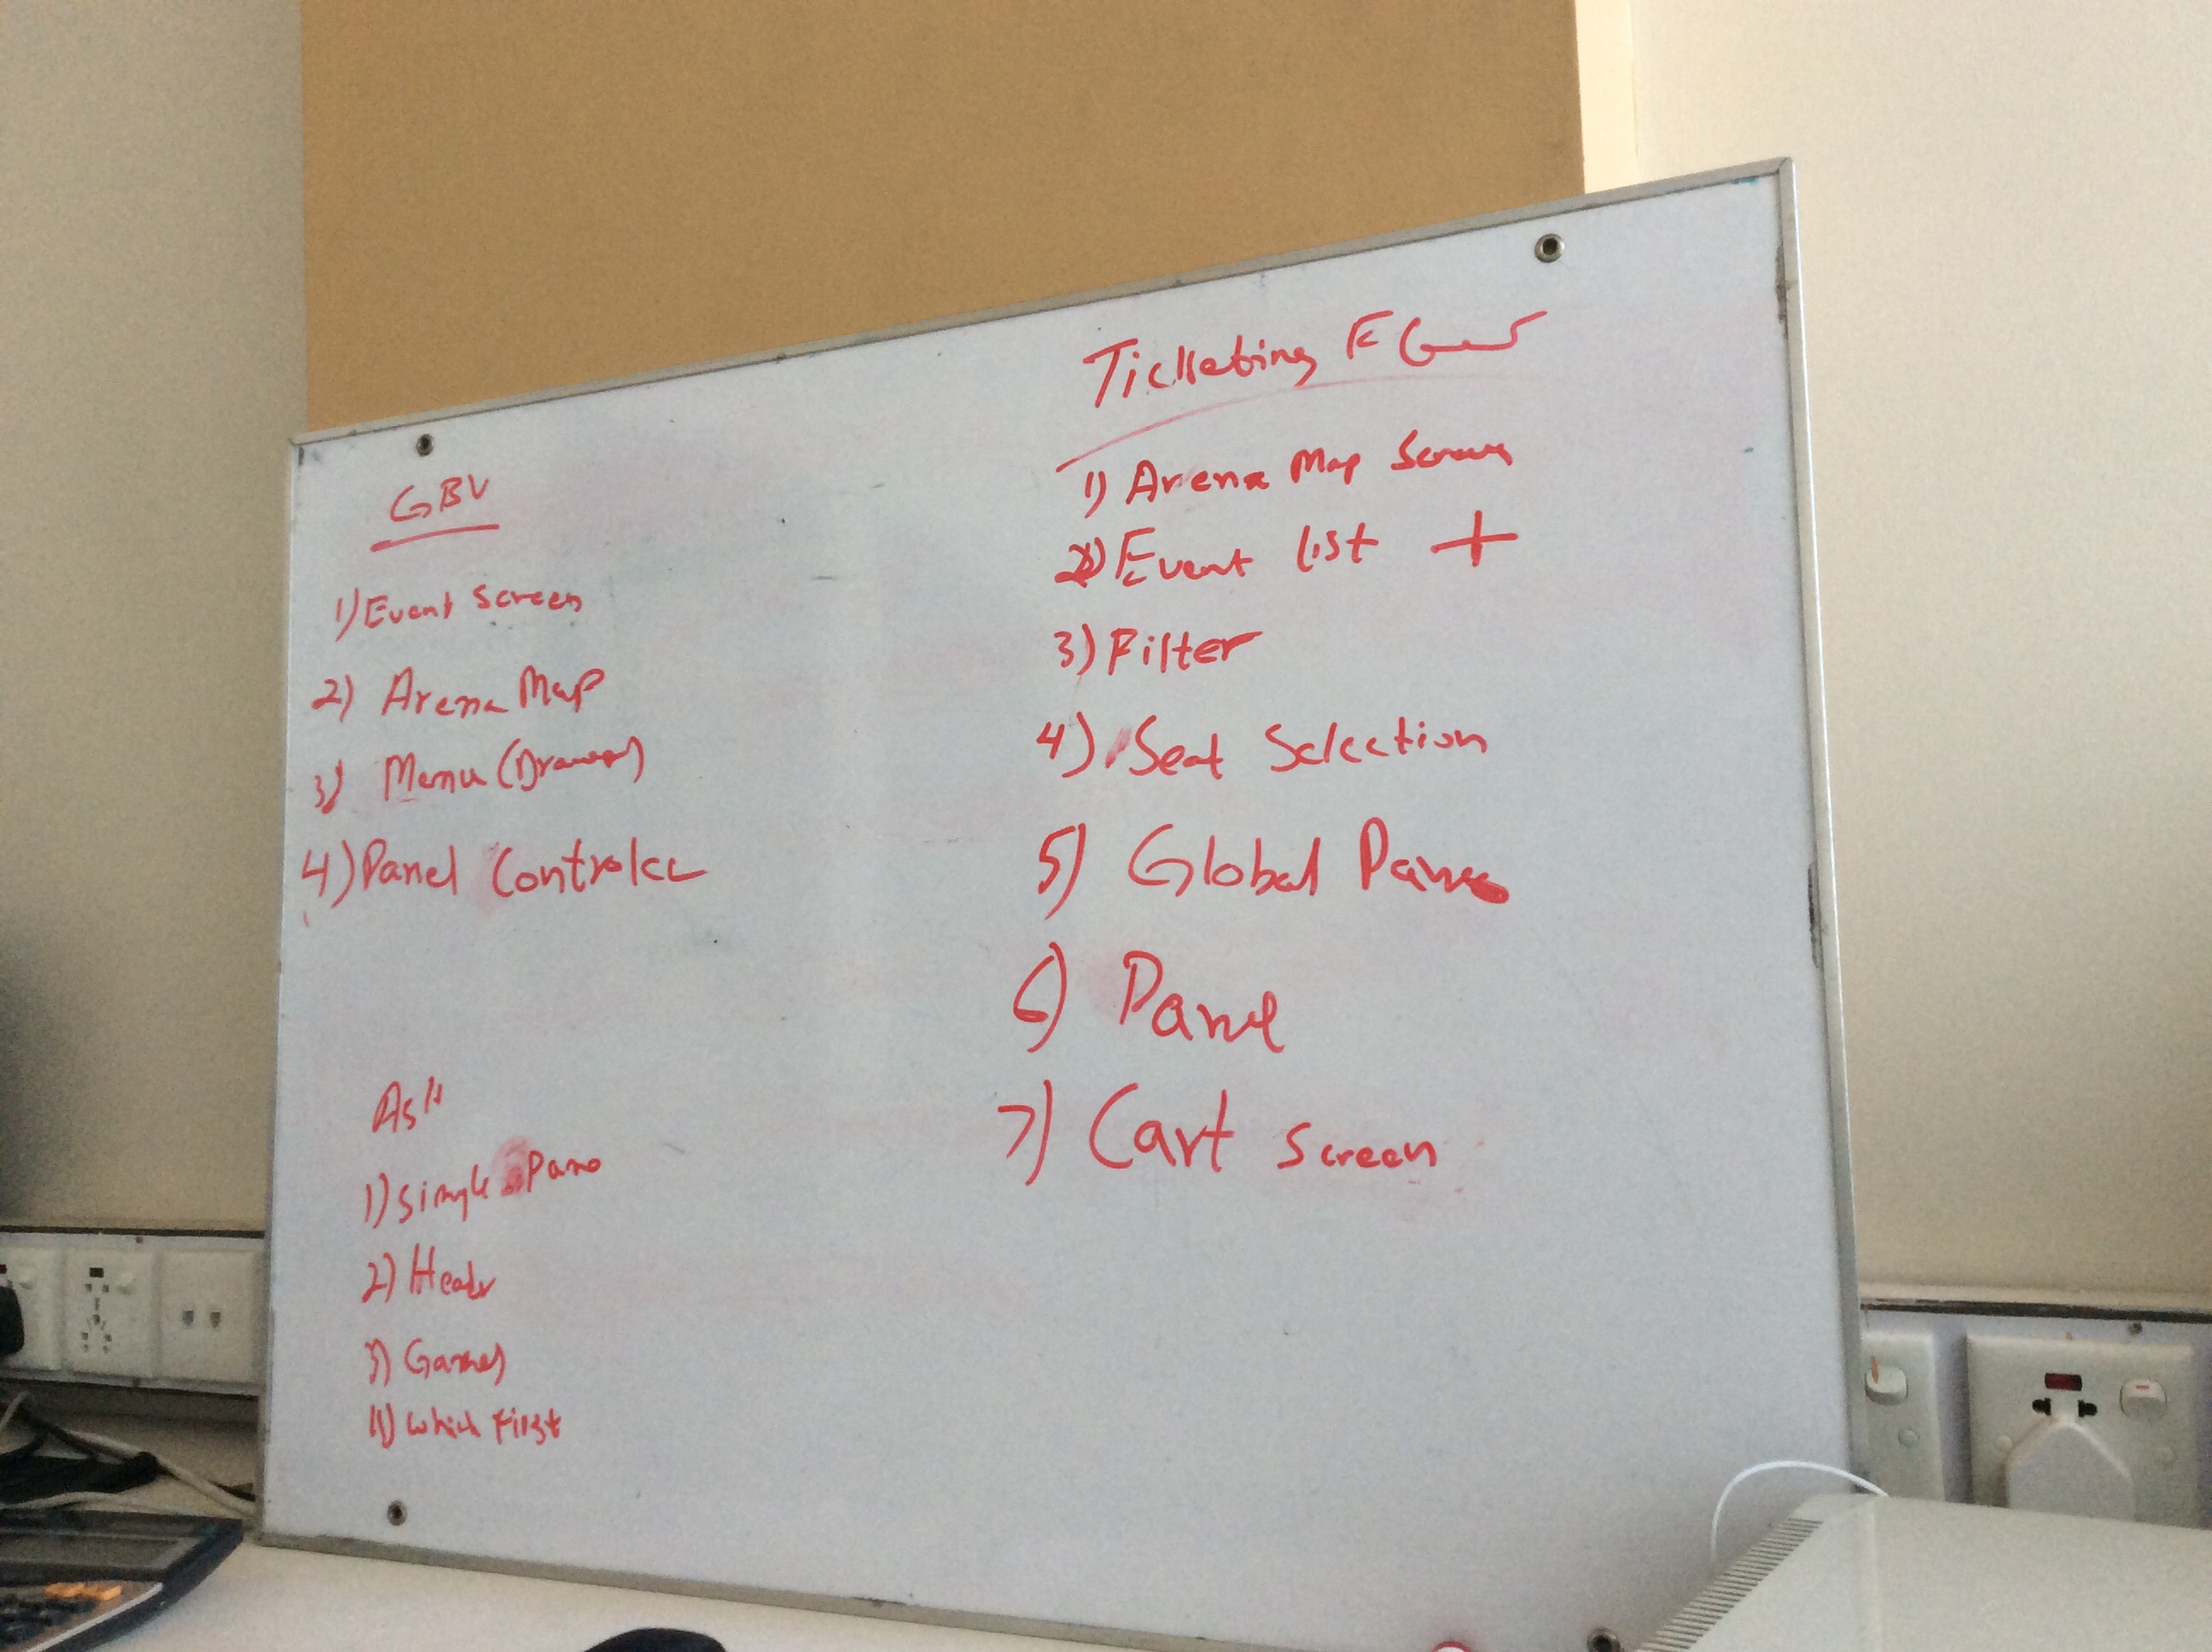 GBV
1) Event Screen
2) Arena Map
3) Menu (Drawer)
4) Panel Controler
Ask
1) Single Pano
2) Header
3) Games
4) Which First
Ticketing
1) Arena Map Screen
2) Event List +
3) Filter
4) Seat Selection
5) Global Pano
6) Panel
7) Cart Screen